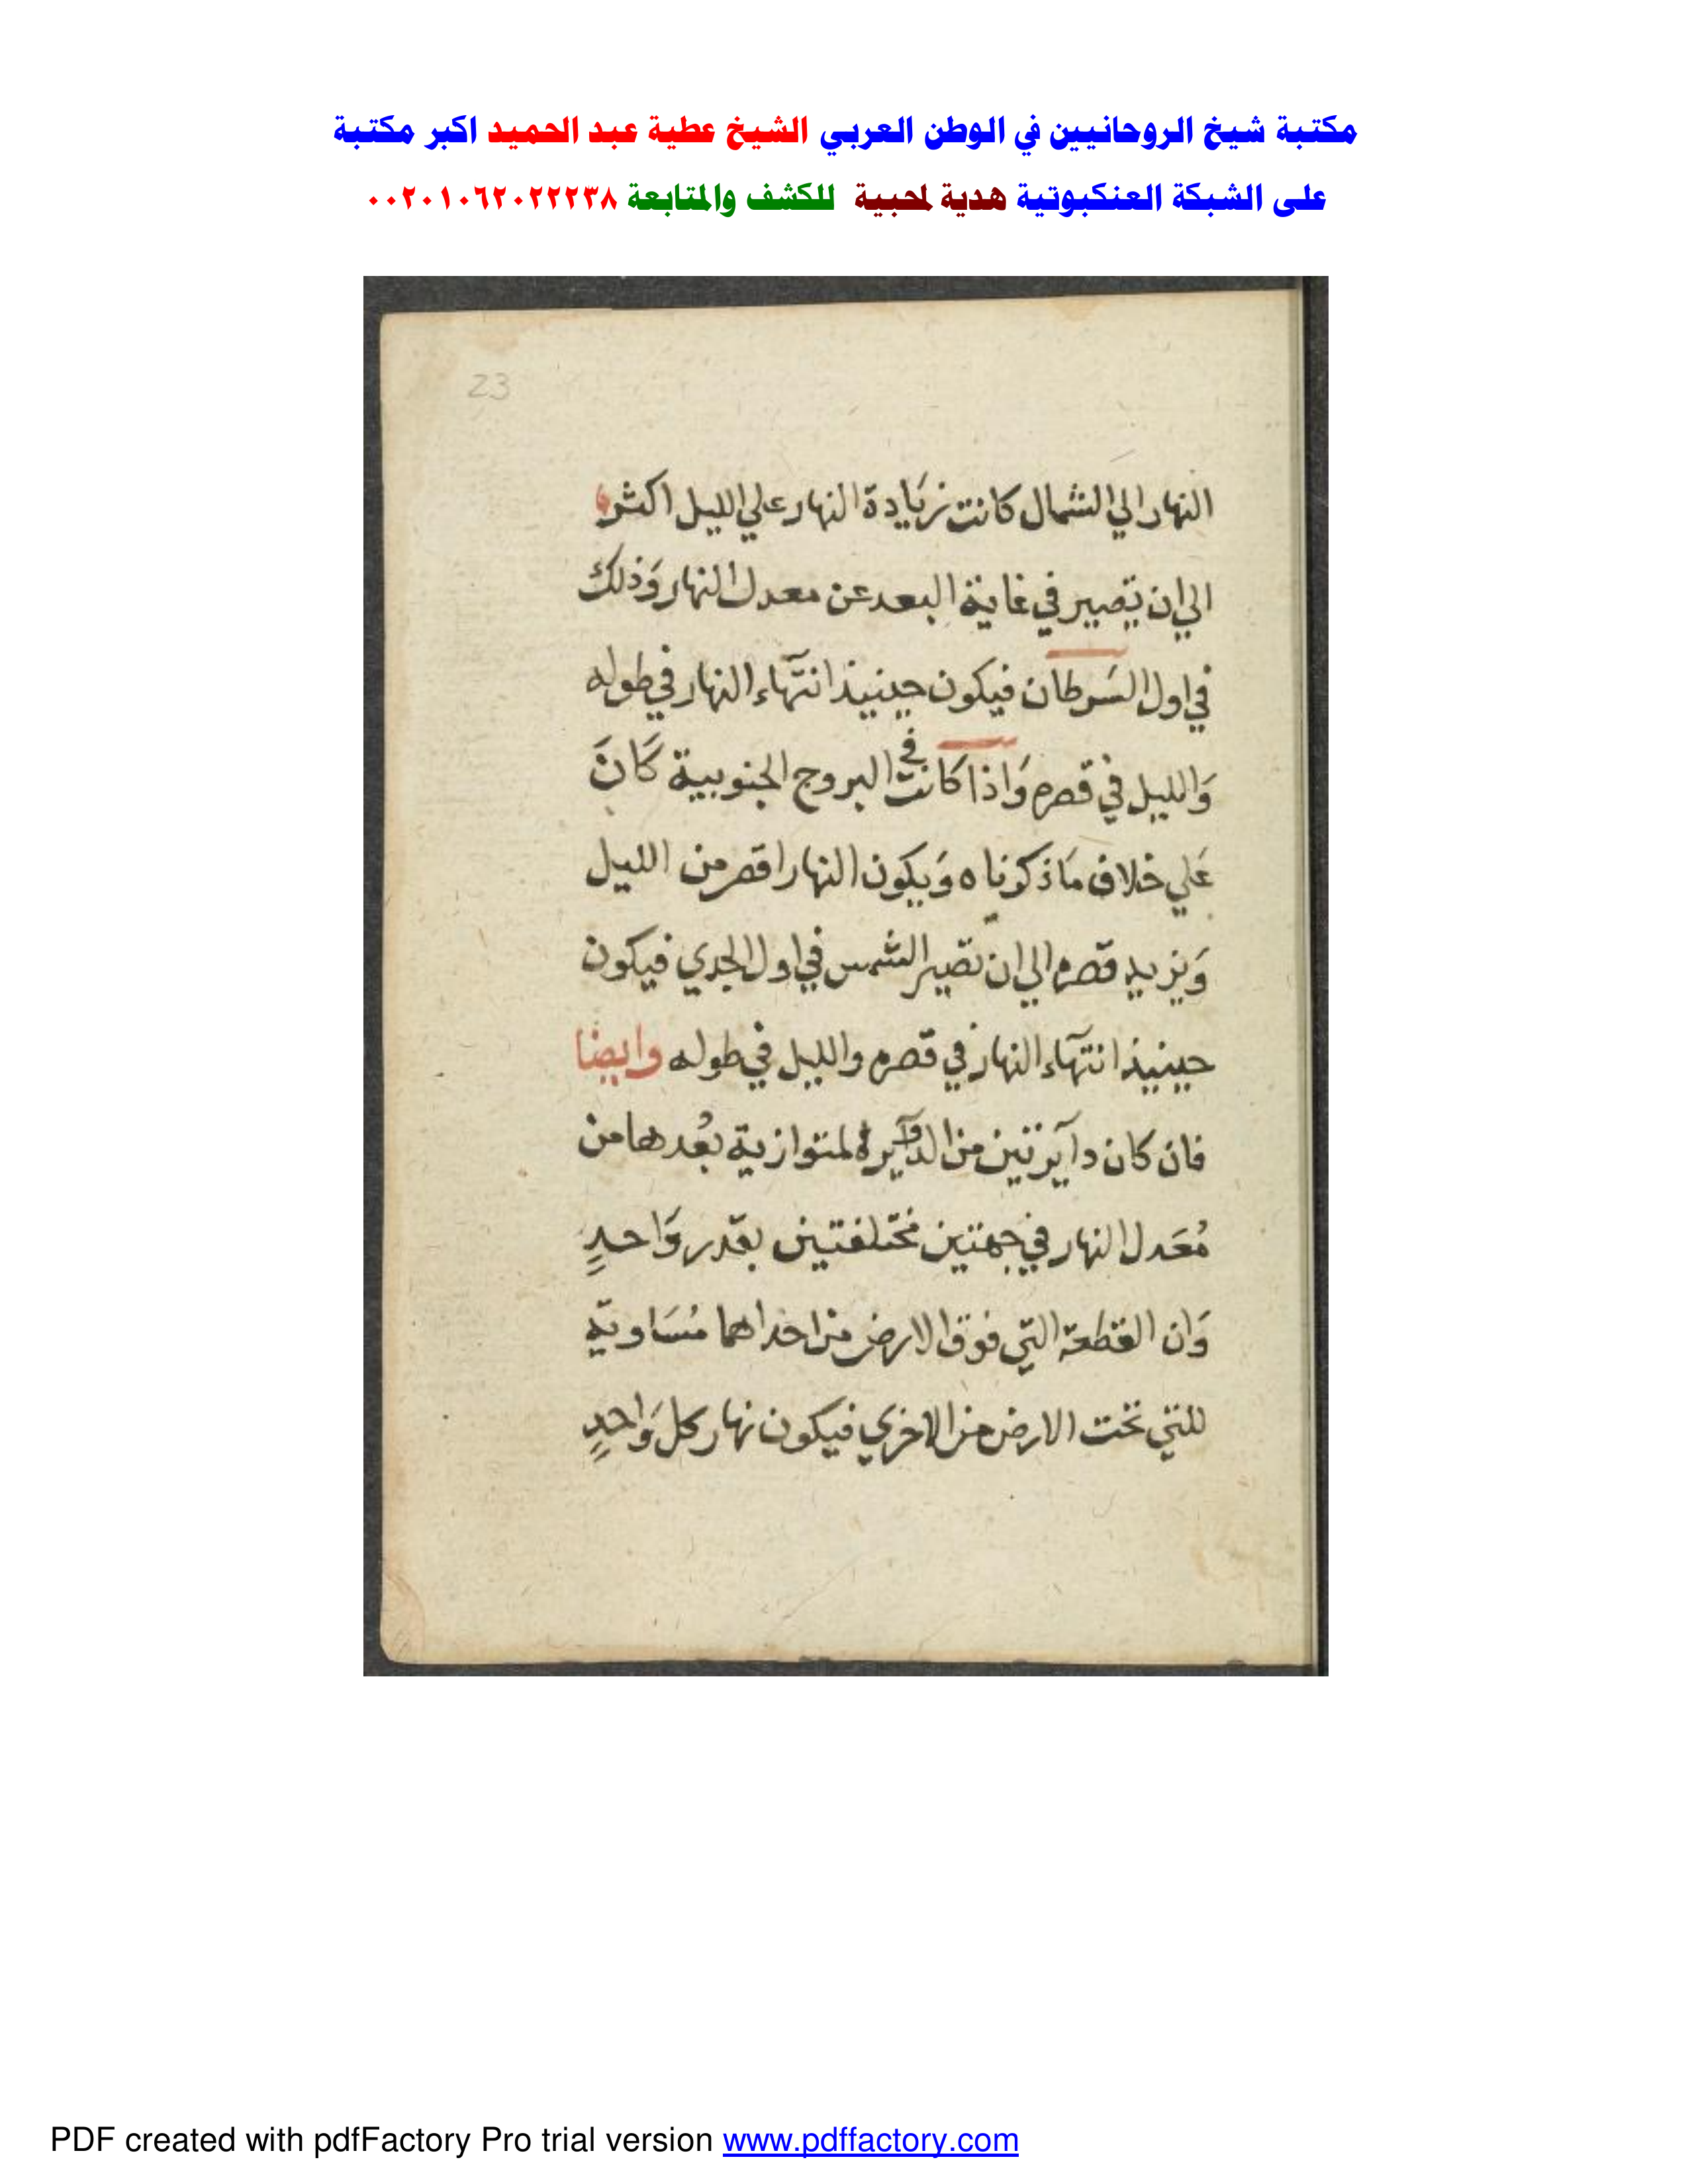 مكتبة شيخ الروحانيين في الوطن العربي الشيخ عطية عبد الحميد اكبر مكتبة
على الشبكة العنكبوتية هدية لمحبية للكشف والمتابعة ٠٠٢٠١٠٦٢٠٢٢٢٣٨
23
النهار الي الشمال كانت زيَادة النهار علي الليل اكثر
الي ان تصير في غاية البعد عن معدل النهار وَذلك
في اول السَرطان فيكون حينيذ انتهآء النهار في طوله
وَالليل في قصره وَاذا كَانت في البروج الجنوبية كَانَ
عَلي خلاف مَا ذكرناه وَيكون النهار اقصر من الليل
وَيزيد قصره الي ان تصير الشمس في اول الجدي فيكون
حينيذ انتهآء النهار في قصره والليل في طوله وايضا
فان كان دآيرتين من الدوآيره لمتوازية بُعدها من
مُعَدل النهار في جهتين مختلفتين بقدر وَاحدٍ
وَان القطعة التي فوق الارض من احداهما مُسَاوية
للتي تحت الارض من الاخري فيكون نهار كل وَاحدٍ
PDF created with pdfFactory Pro trial version www.pdffactory.com